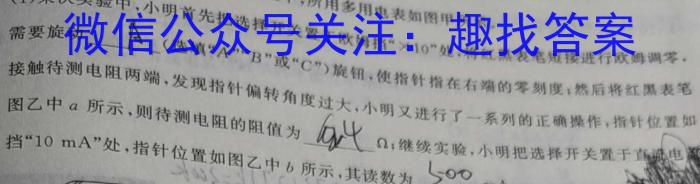 所用多用电表如图甲
小明首先把选择开关置于欧姆挡"×10"处,将红黑表笔短接进行欧姆调零,
微信公众号关注:趣找答案
需要旋动 (选填"A""B"或"C")旋钮,使指针指在右端的零刻度;然后将红黑表笔
接触待测电阻两端,发现指针偏转角度过大,小明又进行了一系列的正确操作,指针位置如
图乙中 a 所示,则待测电阻的阻值为 Ω;继续实验,小明把选择开关置于直流电
挡"10 mA"处,指针位置如图乙中 b 所示,其读数为 500